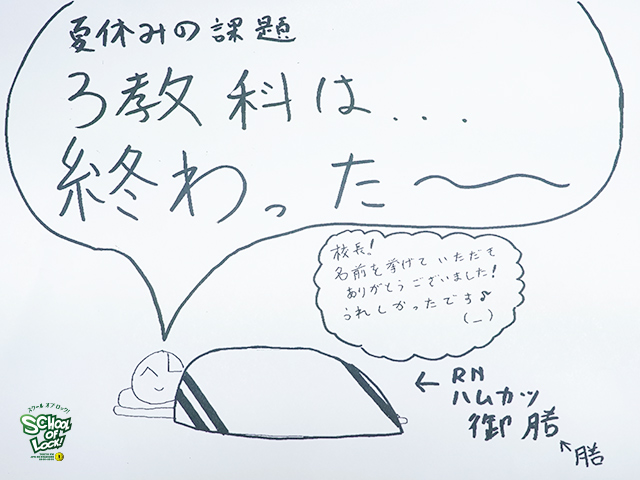 夏休みの課題
3教科は...
終わった〜
校長!
名前を挙げていただき
ありがとうございました!
うれしかったです♪
(_)
← RN
ハムカツ
御膳
膳
スクール オブ ロック!
SCHOOL
OF
LOCK!